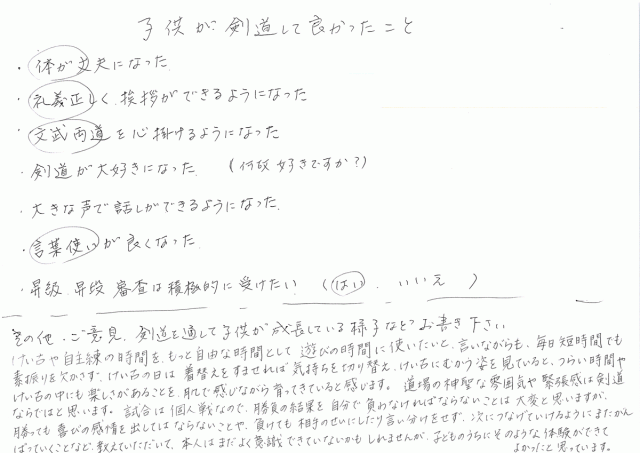 子供が剣道して良かったこと
・体が丈夫になった
・礼義正しく挨拶ができるようになった
・文武両道を心掛けるようになった
・剣道が大好きになった (何故好きですか?)
・大きな声で話しができるようになった
・言葉使いが良くなった
・昇級、昇段審査は積極的に受けたい (はい . いいえ )
その他、ご意見、剣道を通して子供が成長している様子などお書き下さい
けい古や自主練の時間を、もっと自由な時間として遊びの時間に使いたいと、言いながらも、毎日短時間でも
素振りを欠かさず、けい古の日は着替えをすませれば気持ちを切り替え、けい古にむかう姿を見ていると、つらい時間や
けい古の中にも楽しさがあることを、肌で感じながら育ってきていると感じます。道場の神聖な雰囲気や緊張感は剣道
ならではと思います。試合は個人戦なので、勝負の結果を自分で負わなければならないことは大変と思いますが、
勝っても喜びの感情を出してはならないことや、負けても相手のせいにしたり言い分けをせず、次につなげていけるようにまたがん
ばっていくことなど、教えていただいて、本人はまだよく意識できていないかもしれませんが、子どものうちにそのような体験ができて
よかったと思っています。